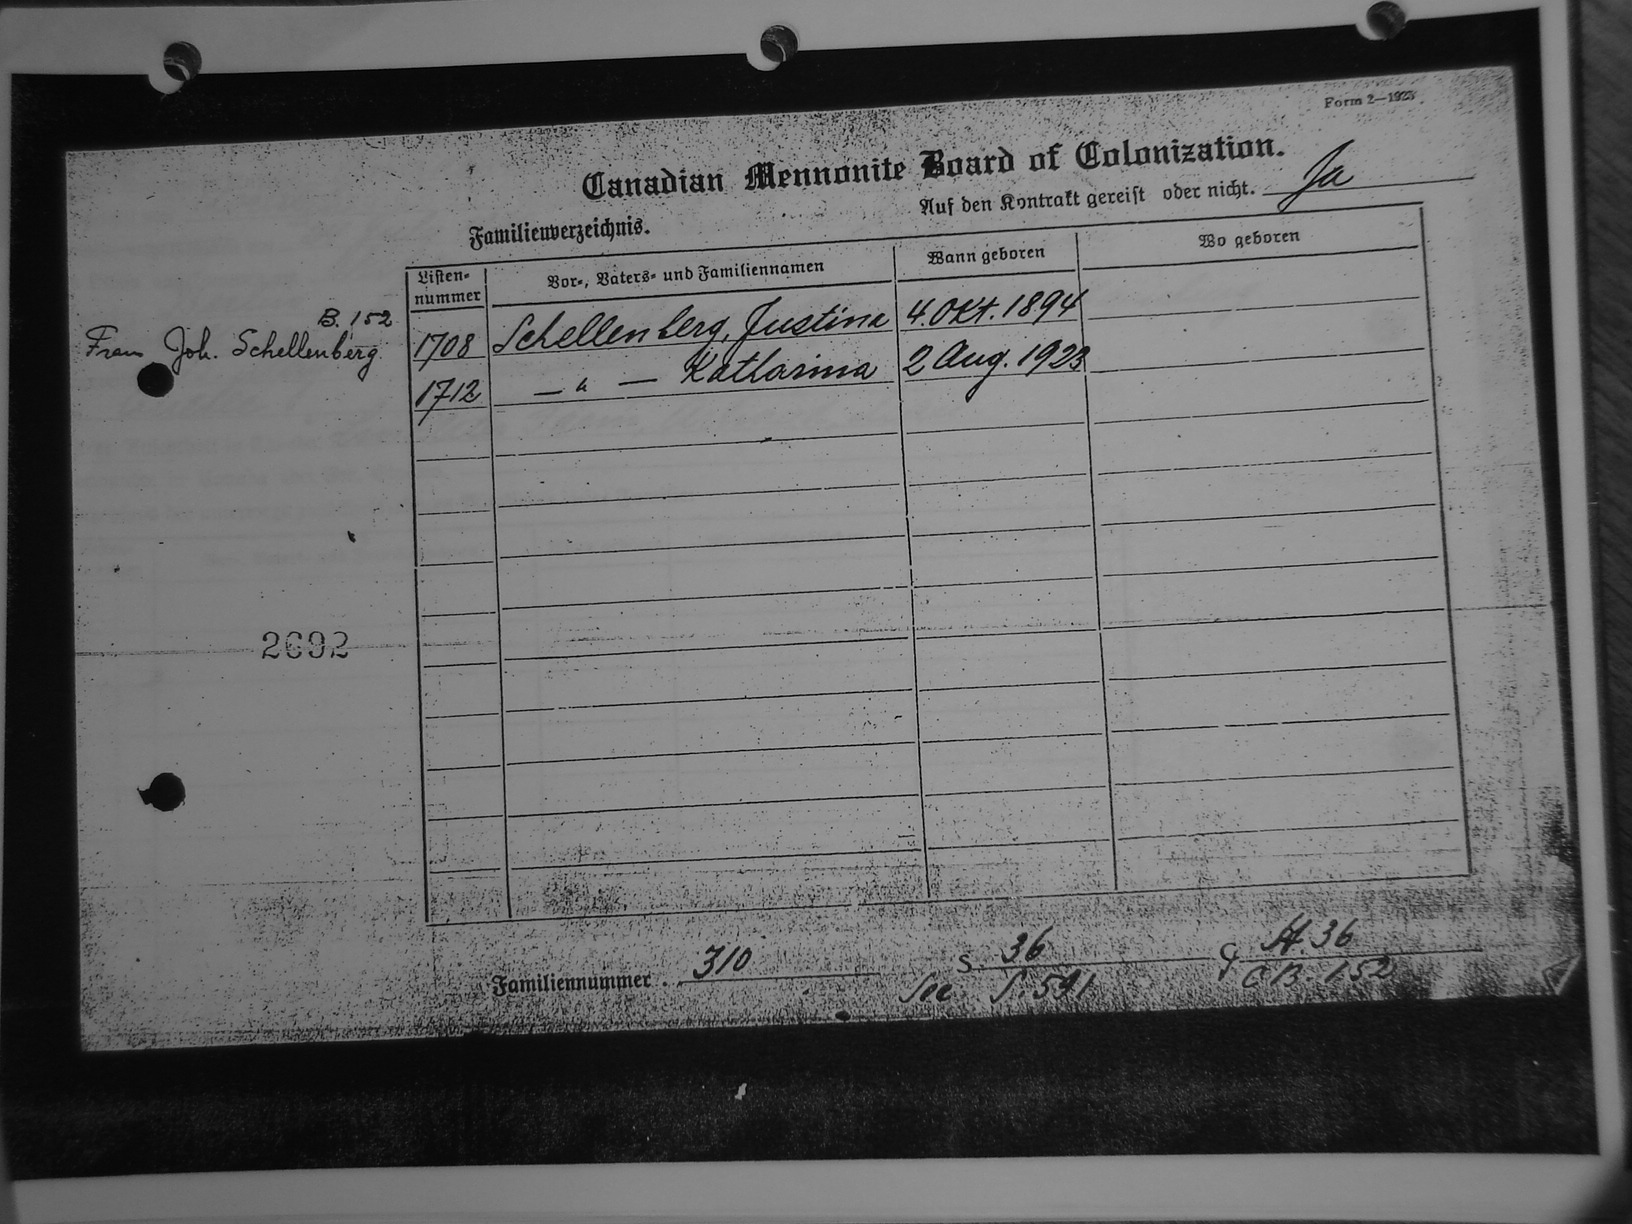 Form 2—1923
Canadian Mennonite Board of Colonization.
Auf den Kontrakt gereist oder nicht. Ja
Familienverzeichnis.
Listen-nummer Vor-, Vaters- und Familiennamen Wann geboren Wo geboren
B. 152
Frau Joh. Schellenberg
1708 Schellenberg, Justina 4. Okt. 1894
1712 — " — Katharina 2 Aug. 1923
2692
Familiennummer. 310 S. 36 A. 36
See S. 591 CB. 152